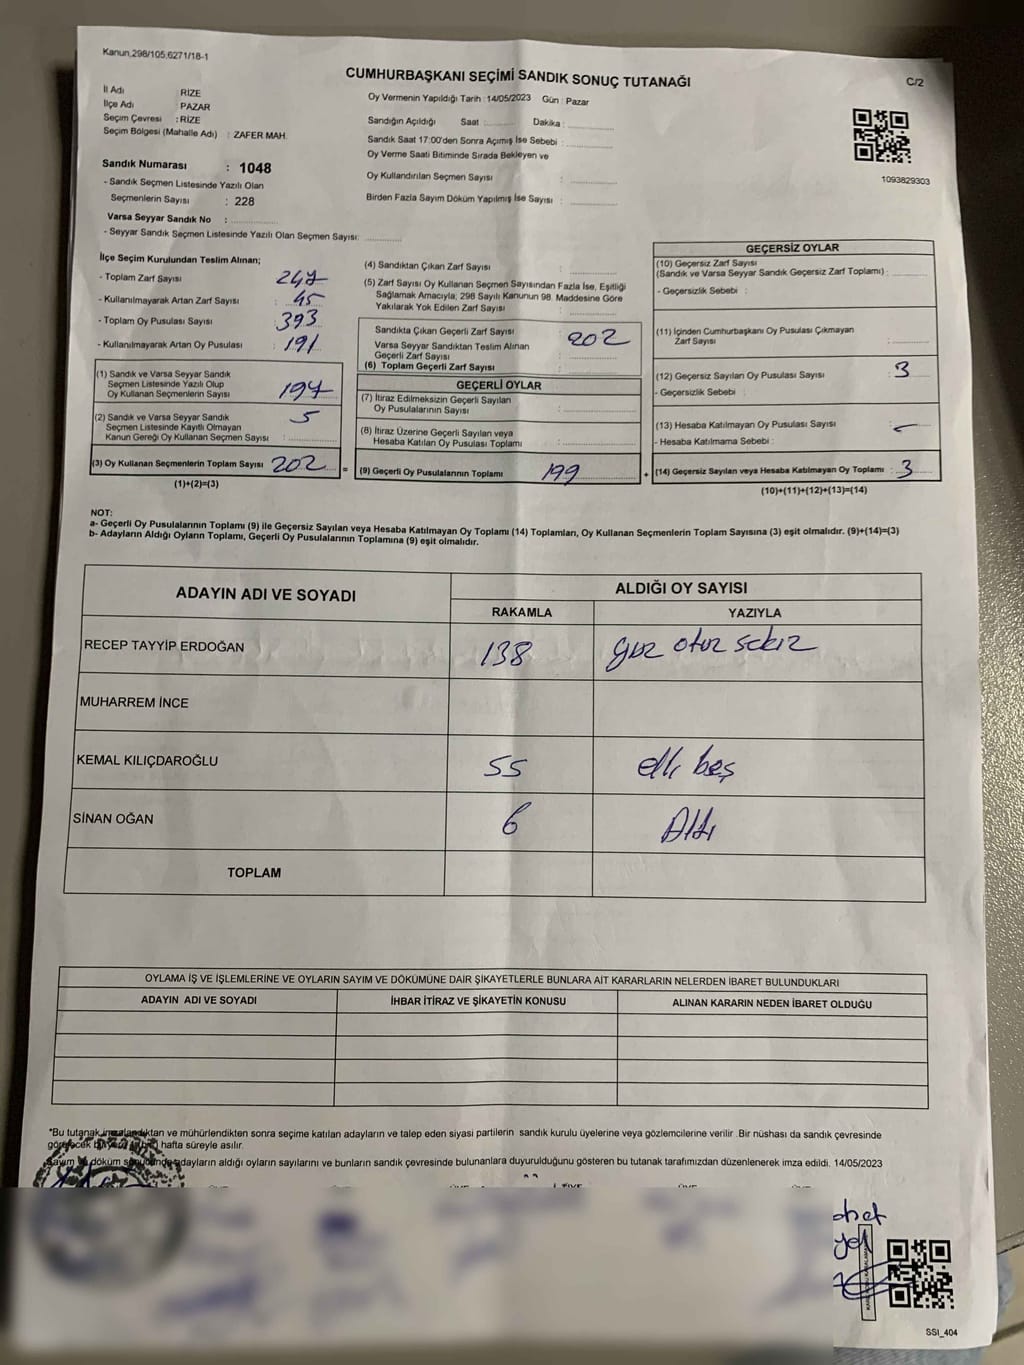 Kanun,298/105,6271/18-1
CUMHURBAŞKANI SEÇİMİ SANDIK SONUÇ TUTANAĞI
C/2
İl Adı : RİZE
İlçe Adı : PAZAR
Seçim Çevresi : RİZE
Seçim Bölgesi (Mahalle Adı) : ZAFER MAH.
Oy Vermenin Yapıldığı Tarih : 14/05/2023 Gün : Pazar
Sandığın Açıldığı Saat : Dakika :
Sandık Saat 17:00'den Sonra Açımış İse Sebebi :
Oy Verme Saati Bitiminde Sırada Bekleyen ve
Oy Kullandırılan Seçmen Sayısı :
Birden Fazla Sayım Döküm Yapılmış İse Sayısı :
1093829303
Sandık Numarası : 1048
- Sandık Seçmen Listesinde Yazılı Olan
Seçmenlerin Sayısı : 228
Varsa Seyyar Sandık No :
- Seyyar Sandık Seçmen Listesinde Yazılı Olan Seçmen Sayısı:
İlçe Seçim Kurulundan Teslim Alınan;
- Toplam Zarf Sayısı : 247
- Kullanılmayarak Artan Zarf Sayısı : 45
- Toplam Oy Pusulası Sayısı : 393
- Kullanılmayarak Artan Oy Pusulası : 191
(1) Sandık ve Varsa Seyyar Sandık
Seçmen Listesinde Yazılı Olup
Oy Kullanan Seçmenlerin Sayısı : 197
(2) Sandık ve Varsa Seyyar Sandık
Seçmen Listesinde Kayıtlı Olmayan
Kanun Gereği Oy Kullanan Seçmen Sayısı : 5
(3) Oy Kullanan Seçmenlerin Toplam Sayısı : 202
(1)+(2)=(3)
(4) Sandıktan Çıkan Zarf Sayısı :
(5) Zarf Sayısı Oy Kullanan Seçmen Sayısından Fazla İse, Eşitliği
Sağlamak Amacıyla; 298 Sayılı Kanunun 98. Maddesine Göre
Yakılarak Yok Edilen Zarf Sayısı :
Sandıkta Çıkan Geçerli Zarf Sayısı : 202
Varsa Seyyar Sandıktan Teslim Alınan
Geçerli Zarf Sayısı :
(6) Toplam Geçerli Zarf Sayısı :
GEÇERLİ OYLAR
(7) İtiraz Edilmeksizin Geçerli Sayılan
Oy Pusulalarının Sayısı :
(8) İtiraz Üzerine Geçerli Sayılan veya
Hesaba Katılan Oy Pusulası Toplamı :
= (9) Geçerli Oy Pusulalarının Toplamı : 199
GEÇERSİZ OYLAR
(10) Geçersiz Zarf Sayısı
(Sandık ve Varsa Seyyar Sandık Geçersiz Zarf Toplamı) :
- Geçersizlik Sebebi :
(11) İçinden Cumhurbaşkanı Oy Pusulası Çıkmayan
Zarf Sayısı :
(12) Geçersiz Sayılan Oy Pusulası Sayısı : 3
- Geçersizlik Sebebi :
(13) Hesaba Katılmayan Oy Pusulası Sayısı : -
- Hesaba Katılmama Sebebi :
+ (14) Geçersiz Sayılan veya Hesaba Katılmayan Oy Toplamı : 3
(10)+(11)+(12)+(13)=(14)
NOT:
a- Geçerli Oy Pusulalarının Toplamı (9) ile Geçersiz Sayılan veya Hesaba Katılmayan Oy Toplamı (14) Toplamları, Oy Kullanan Seçmenlerin Toplam Sayısına (3) eşit olmalıdır. (9)+(14)=(3)
b- Adayların Aldığı Oyların Toplamı, Geçerli Oy Pusulalarının Toplamına (9) eşit olmalıdır.
ADAYIN ADI VE SOYADI
ALDIĞI OY SAYISI
RAKAMLA YAZIYLA
RECEP TAYYİP ERDOĞAN 138 yüz otuz sekiz
MUHARREM İNCE
KEMAL KILIÇDAROĞLU 55 elli beş
SİNAN OĞAN 6 Altı
TOPLAM
OYLAMA İŞ VE İŞLEMLERİNE VE OYLARIN SAYIM VE DÖKÜMÜNE DAİR ŞİKAYETLERLE BUNLARA AİT KARARLARIN NELERDEN İBARET BULUNDUKLARI
ADAYIN ADI VE SOYADI İHBAR İTİRAZ VE ŞİKAYETİN KONUSU ALINAN KARARIN NEDEN İBARET OLDUĞU
*Bu tutanak imzalandıktan ve mühürlendikten sonra seçime katılan adayların ve talep eden siyasi partilerin sandık kurulu üyelerine veya gözlemcilerine verilir .Bir nüshası da sandık çevresinde
görülecek bir yere (1 bir) hafta süreyle asılır.
Sayım ve döküm sonucunda adayların aldığı oyların sayılarını ve bunların sandık çevresinde bulunanlara duyurulduğunu gösteren bu tutanak tarafımızdan düzenlenerek imza edildi. 14/05/2023
SSI_404